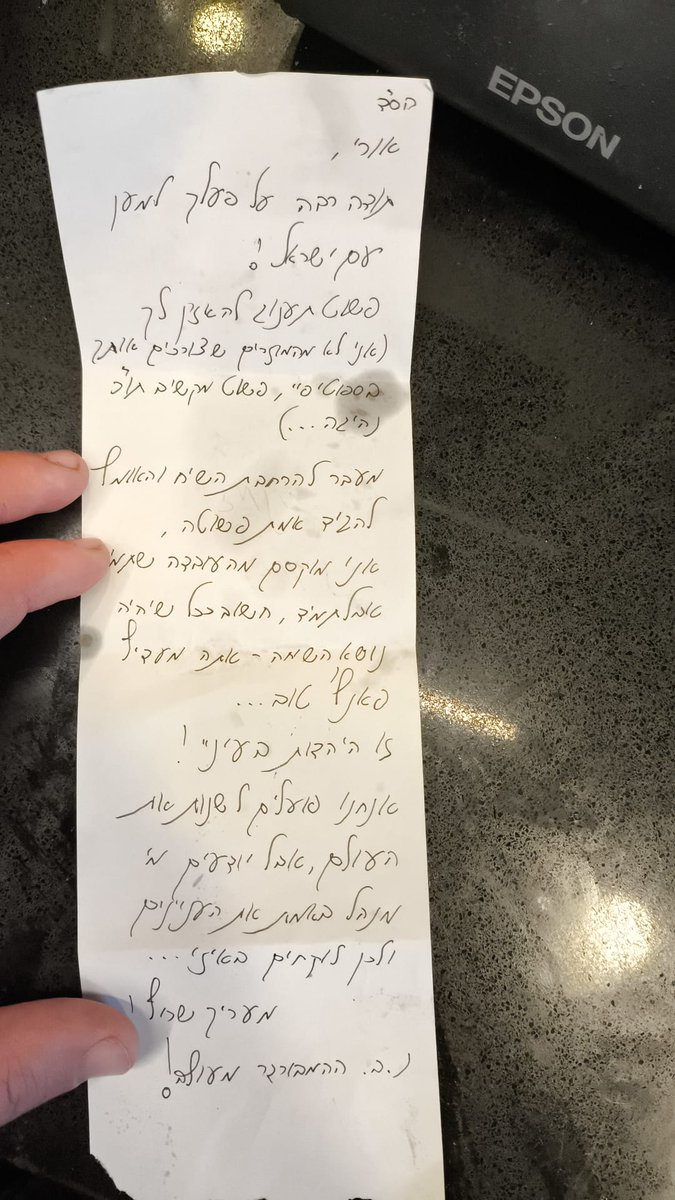 EPSON
בס״ד
אורי,
תודה רבה על פעלך למען
עם ישראל!
פשוט תענוג להאזין לך
(אני לא מהמוזרים שצורכים אותך
בספוטיפיי, פשוט מקשיב תו״כ
נהיגה...)
מעבר להרחבת השיח והאומץ
להגיד אמת פשוטה,
אני מוקסם מהעובדה שתמיד
אבל תמיד, חשוב ככל שיהיה
נושא השיחה - אתה מעדיף
פאנץ' טוב...
זו היהדות בעיניי!
אנחנו פועלים לשנות את
העולם, אבל יודעים מי
מנהל באמת את העניינים
ולכן לוקחים באיזי...
מעריך שרוף!
נ.ב. ההמבורגר מעולה!